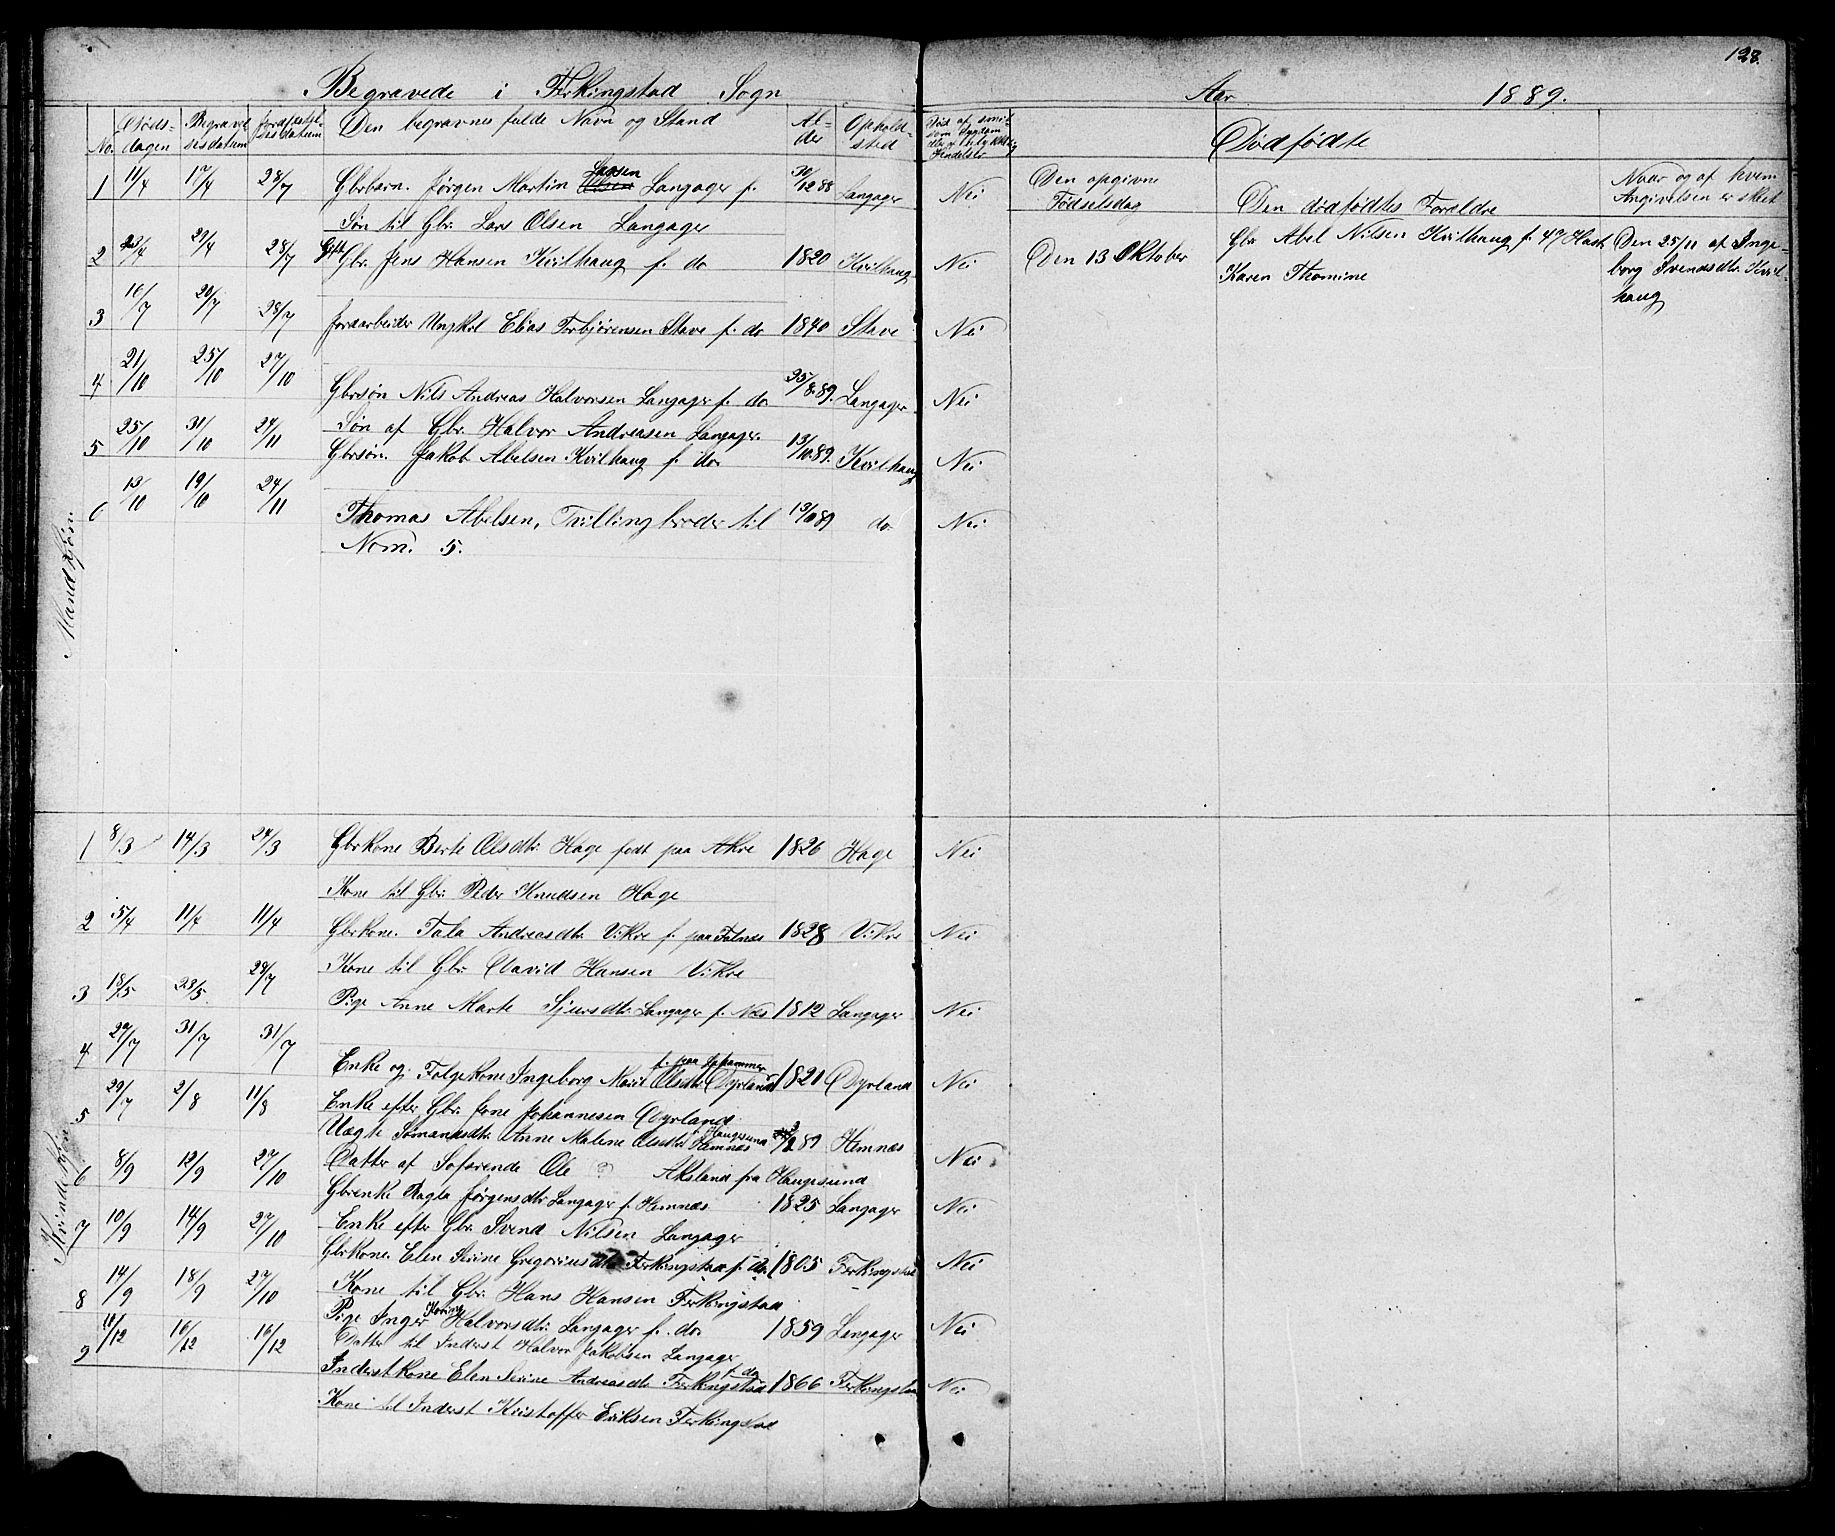 128.
Begravede i Ferkingstad Sogn
Aar 1889.
No. Døds-dagen Begravelsesdatum Jordfæstelsesdatum Den begravnes fulde Navn og Stand Al-der Ophold-sted Død af smitsom Sygdom eller ved Ulykkelig Hendelse
Dødfødte
Den opgivne Fødselsdag
Den dødfødtes Foreldre
Naar og af hvem Angivelsen er skeet
Mandkjøn
1 11/4 17/4 28/7 Gbrbarn. Jørgen Martin Larsen Langager f. 30/12 88 Langager Nei
Søn til Gbr. Lars Olsen Langager
2 23/4 29/4 28/7 Gift Gbr. Jens Hansen Kvilhaug f. do 1820 Kvilhaug Nei
Den 13 Oktober
Gbr Abel Nilsen Kvilhaug f. 47 Hust
Karen Thomine
Den 25/11 af Inge-
borg Svendsdtr. Kvil-
haug
3 16/7 20/7 28/7 Jordarbeider Ungkrl Elias Torbjørensen Stave f. do 1840 Stave Nei
4 21/10 25/10 27/10 Gbrsøn Nils Andreas Halvorsen Langager f. do 25/8 89. Langager Nei
Søn af Gbr. Halvor Andreasen Langager.
5 25/10 31/10 24/11 Gbrsøn. Jakob Abelsen Kvilhaug f. do 13/10 89. Kvilhaug Nei
6 13/10 19/10 24/11 Thomas Abelsen, Tvillingbroder til 13/10 89 do Nei
Nom. 5.
Kvindekjøn
1 8/3 14/3 24/3 Gbrkone Berte Olsdtr. Hage født paa Akre 1826 Hage Nei
Kone til Gbr. Peder Knudsen Hage
2 5/4 11/4 11/4 Gbrkone. Tala Andreasdtr. Vikre f. paa Falnæs 1828 Vikre Nei
Kone til Gbr. David Hansen Vikre
3 18/5 23/5 28/7 Pige Anne Marte Sjursdtr. Langager f. Næs 1812 Langager Nei
4 29/7 31/7 31/7 Enke og Folgekone Ingeborg Marit Olsdtr. Dyrland 1821 Dyrland Nei
Enke efter Gbr. Jone Johannesen Dyrland
5 29/7 2/8 11/8 Uægte Sømandsdtr. Anne Malene Olsdtr Hemnæs 89 Hemnæs Nei
f. Haugesund
Datter af Søfarende Ole (?) Aksland fra Haugesund
6 8/9 12/9 27/10 Gbrenke Ragla Jørgensdtr. Langager f. Hemnæs 1825 Langager Nei
Enke efter Gbr. Svend Nilsen Langager
7 10/9 14/9 27/10 Gbrkone. Elen Serine Gregoriusdtr Ferkingstad f. do. 1805 Ferkingstad Nei
Kone til Gbr. Hans Hansen Ferkingstad
8 14/9 18/9 27/10 Pige Inger Halvorsdtr. Langager f. do. 1859 Langager Nei
Datter til Inderst Halvor Jakobsen Langager
9 10/12 16/12 16/12 Inderstkone Elen Serine Andreasdtr Ferkingstad f. do 1866 Ferkingstad Nei
Kone til Inderst Kristoffer Eriksen Ferkingstad